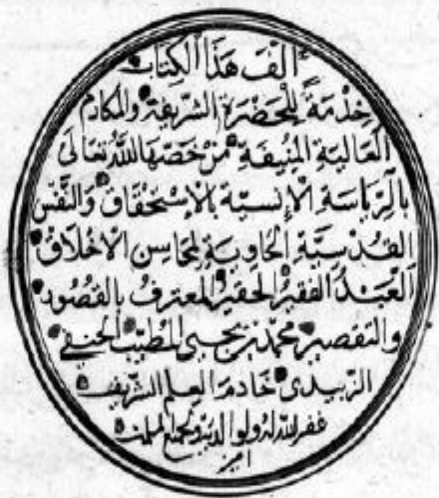 الف هذا الكتاب
خِدْمَةً لِلْحَضْرَةِ الشَّرِيفَةِ وَالْمَكَارِمِ
الْعَالِيَةِ الْمُنِيفَةِ مَنْ خَصَّهَا اللّٰهُ تَعَالَى
بِالرِّيَاسَةِ الْإِنْسِيَّةِ بِالْإِسْتِحْقَاقِ وَالنَّفْسِ
القُدْسِيَّةِ الحَاوِيَةِ لِمَحَاسِنِ الأَخْلَاقِ
العَبْدُ الفَقِيرُ الحَقِيرُ المعترف بالقصور
والتقصير محمد بن يحيى المطيب الحنفي
الزبيدى خادم العلم الشريف
غفر الله له ولوالديه ولجميع المسلمين
امين